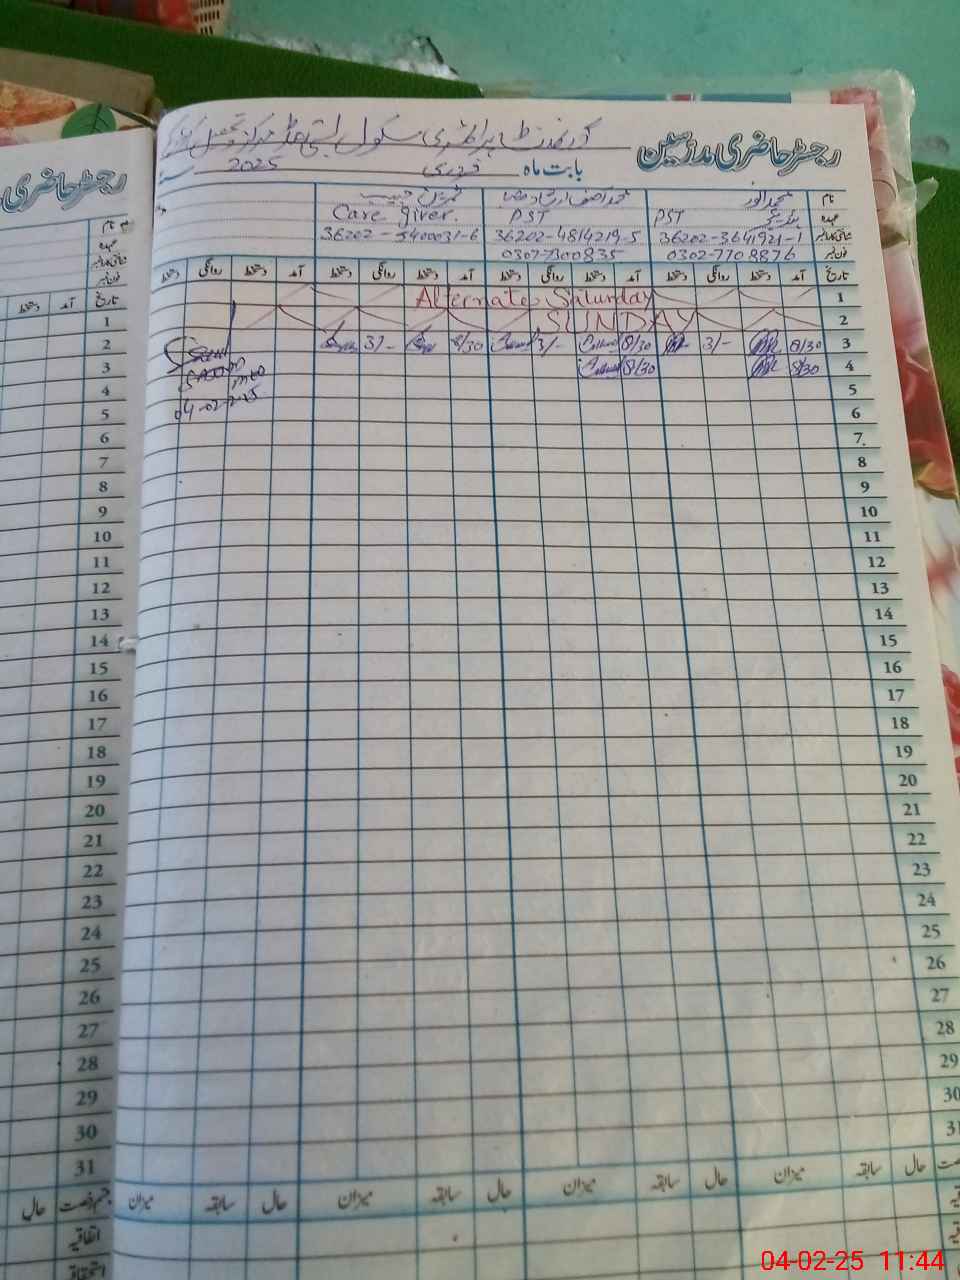 رجسٹر حاضری مدرسین
گورنمنٹ پرائمری سکول بستی
بابت ماہ فروری 2025
نام محمد انور محمد آصف ارشاد ثمرین حبیب
عہدہ PST PST Care giver.
36202-3641921-1 36202-4814219-5 36202-5400031-6
0302-7708876 0307-7300835
تاریخ آمد دستخط روانگی دستخط آمد دستخط روانگی دستخط آمد دستخط روانگی دستخط آمد دستخط روانگی دستخط
1 Alternate Saturday
2 SUNDAY
3 8/30 3/- 8/30 3/- 8/30 3/-
4 8/30 8/30
04-02-2025
5
6
7
8
9
10
11
12
13
14
15
16
17
18
19
20
21
22
23
24
25
26
27
28
29
30
31
حال سابقہ میزان حال سابقہ میزان حال سابقہ میزان حال سابقہ میزان
رجسٹر حاضری
نام
عہدہ
تاریخ آمد دستخط
1
2
3
4
5
6
7
8
9
10
11
12
13
14
15
16
17
18
19
20
21
22
23
24
25
26
27
28
29
30
31
حال
اتفاقیہ
04-02-25 11:44